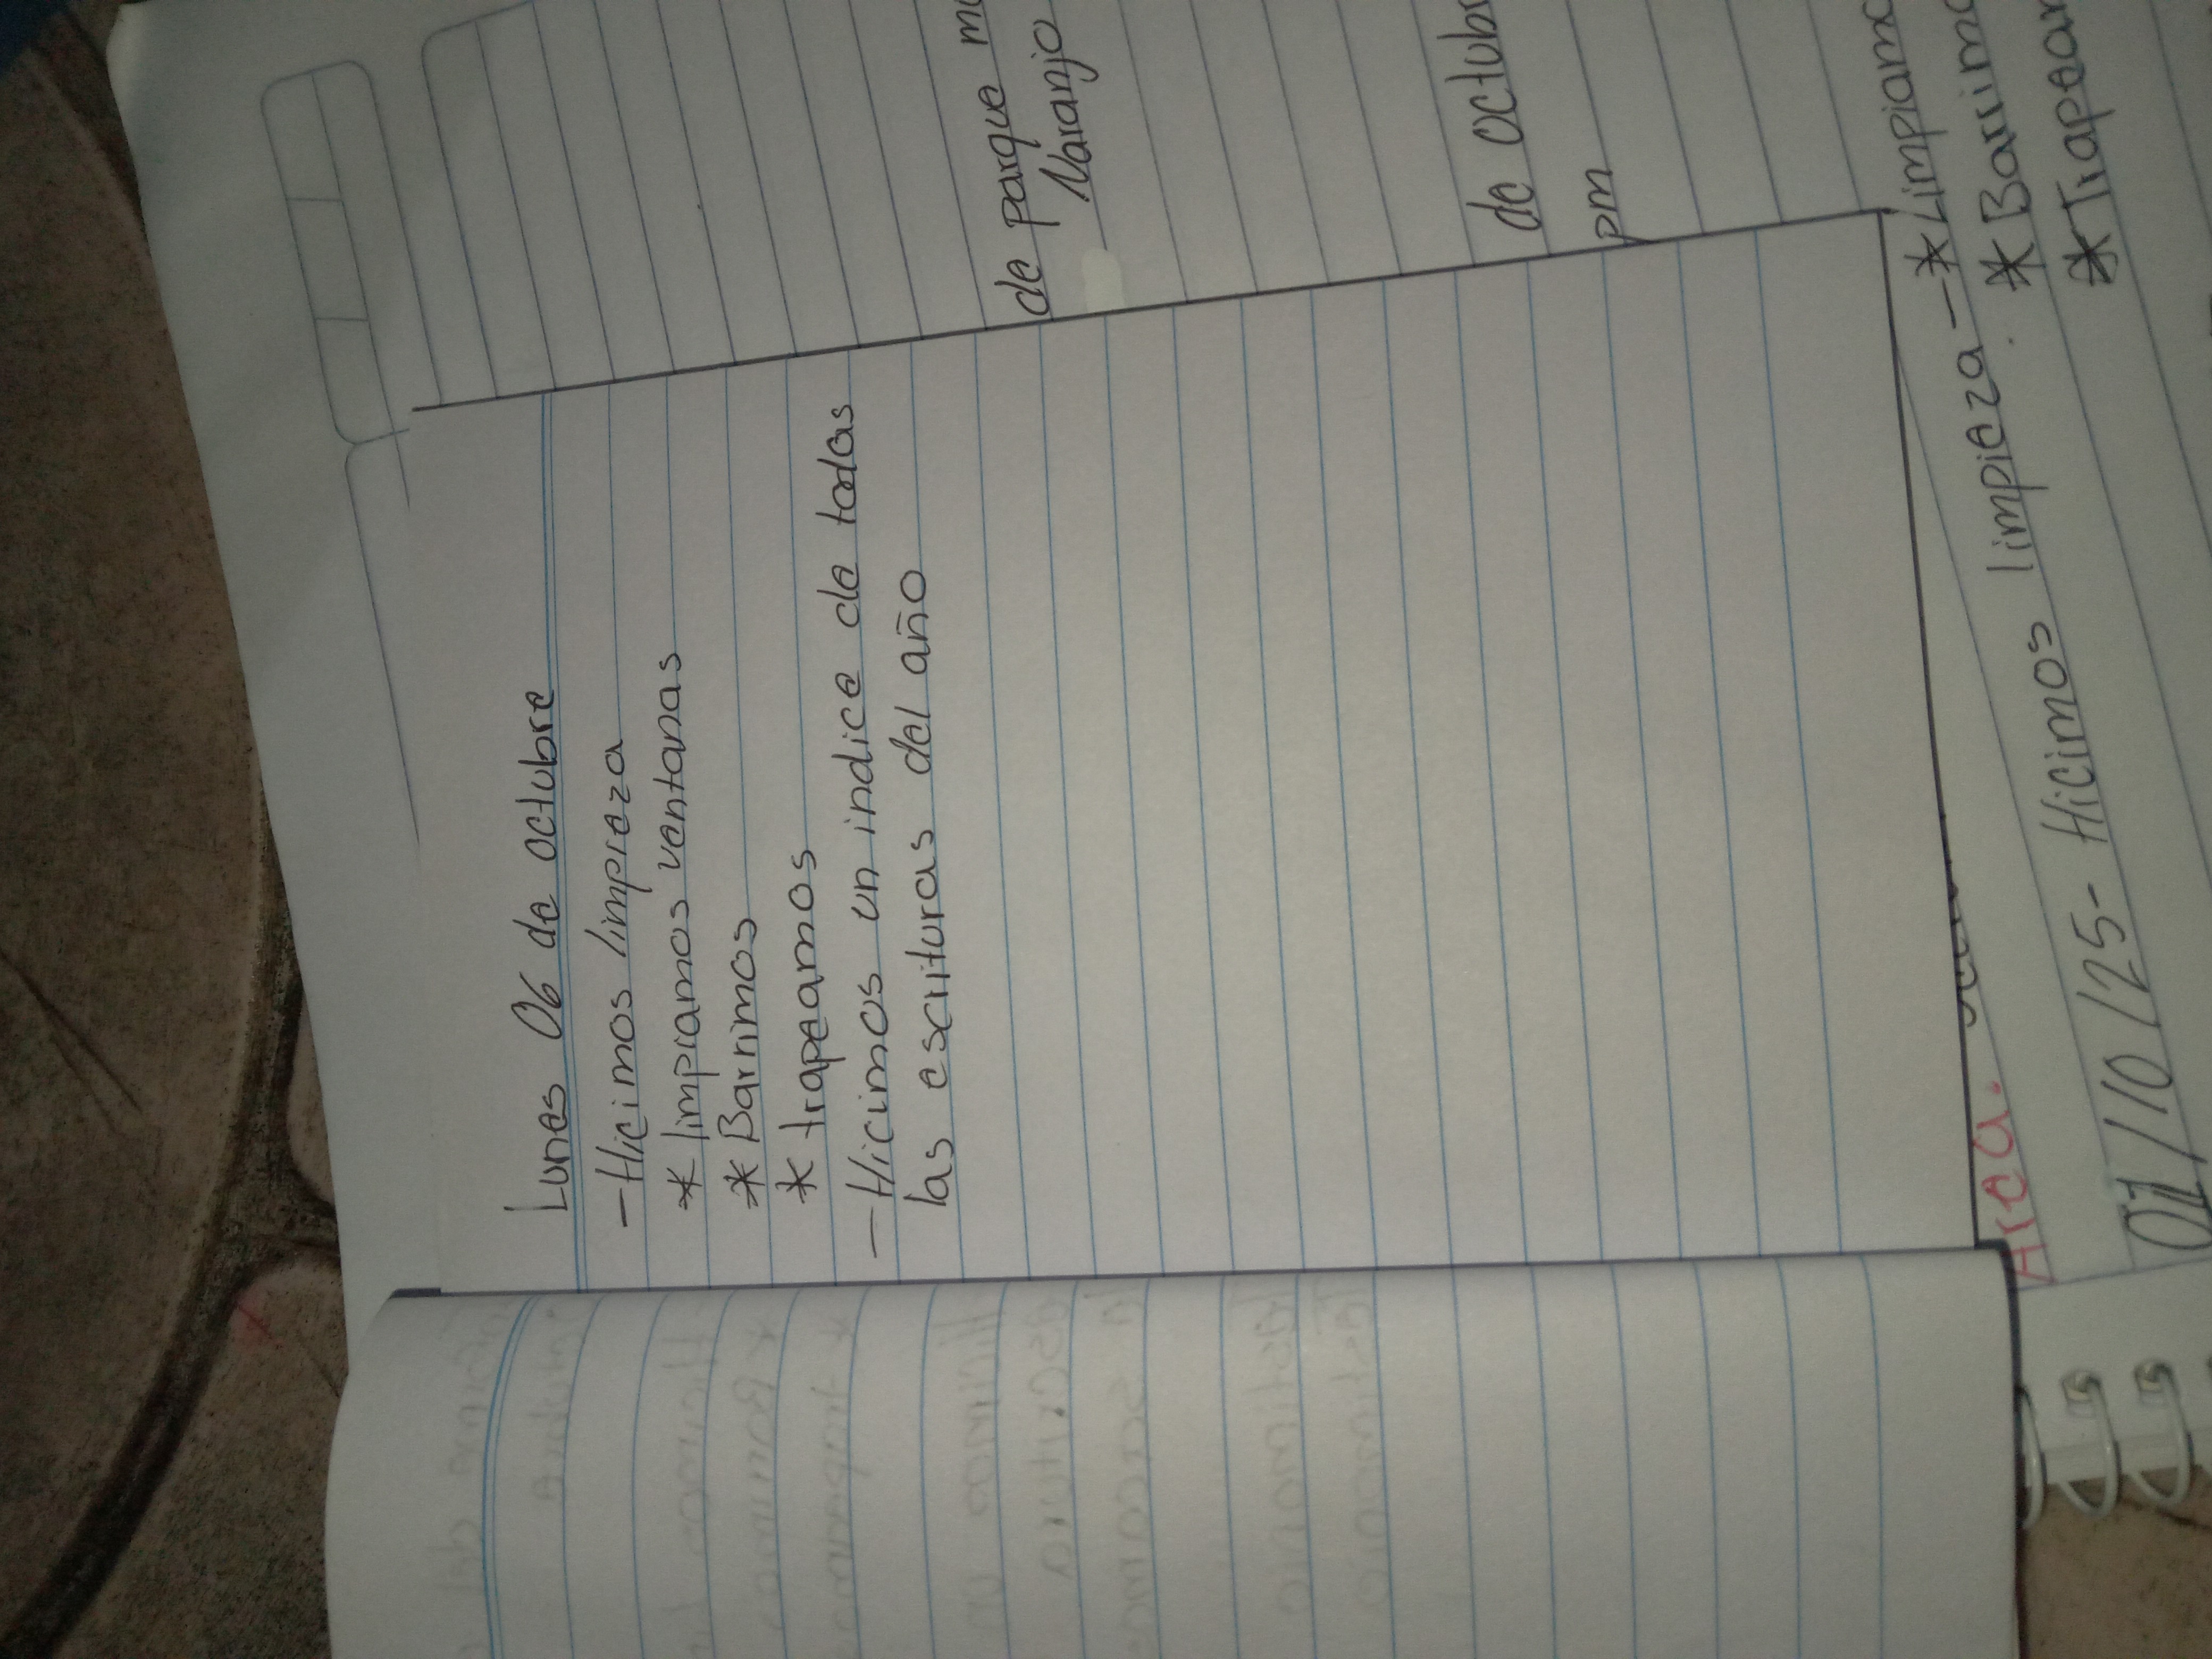 Lunes 06 de octubre
- Hicimos limpieza
* limpiamos ventanas
* Barrimos
* trapeamos
- Hicimos un indice de todas
las escrituras del año
de parque
Naranjo
de octubr
pm
Area.
01/10/25- Hicimos limpieza - * Limpiamo
* Barrimo
* Trapear